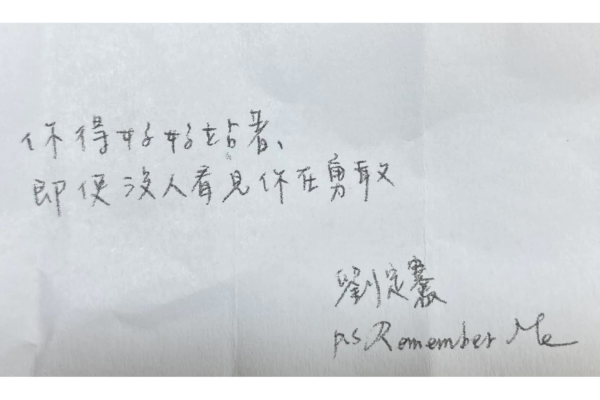 你得好好站著、
即便沒人看見你在勇敢
劉定騫
ps Remember Me